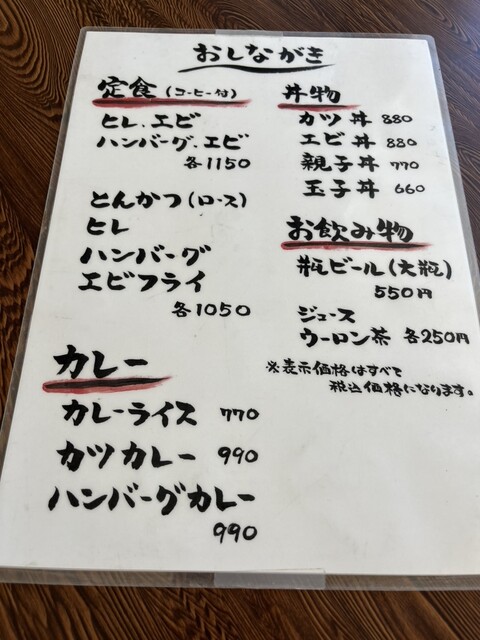 おしながき
定食(コーヒー付)
ヒレ.エビ
ハンバーグ.エビ
各1150
とんかつ(ロース)
ヒレ
ハンバーグ
エビフライ
各1050
カレー
カレーライス 770
カツカレー 990
ハンバーグカレー
990
丼物
カツ丼 880
エビ丼 880
親子丼 770
玉子丼 660
お飲み物
瓶ビール(大瓶)
550円
ジュース
ウーロン茶 各250円
※表示価格はすべて
税込価格になります。